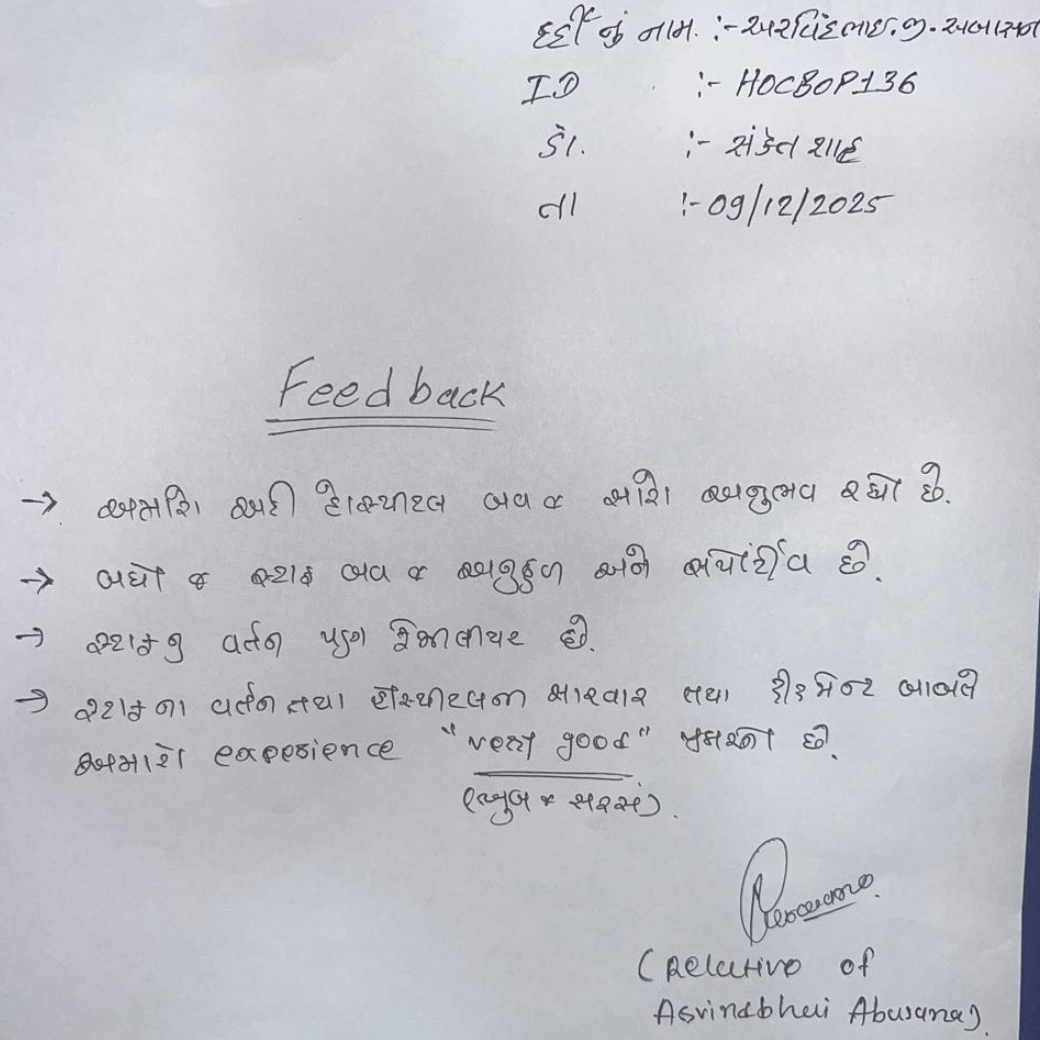 દર્દી નું નામ :- અરવિંદભાઇ.જી.અબાસન
ID :- HOCBOP136
ડૉ. :- સંકેત શાહ
તા :- 09/12/2025
Feedback
→ અમારો અહી હોસ્પીટલ બવ જ સારો અનુભવ રહ્યો છે.
→ બધો જ સ્ટાફ બવ જ અનુકુળ અને છે.
→ સ્ટાફનુ વર્તન પણ છે.
→ સ્ટાફના વર્તન તથા હોસ્પીટલના સારવાર તથા ટ્રીટમેન્ટ બાબતે
અમારો experience "very good" છે.
(ખુબ જ સરસ).
(Relative of
Asrvindbhai Abasana).